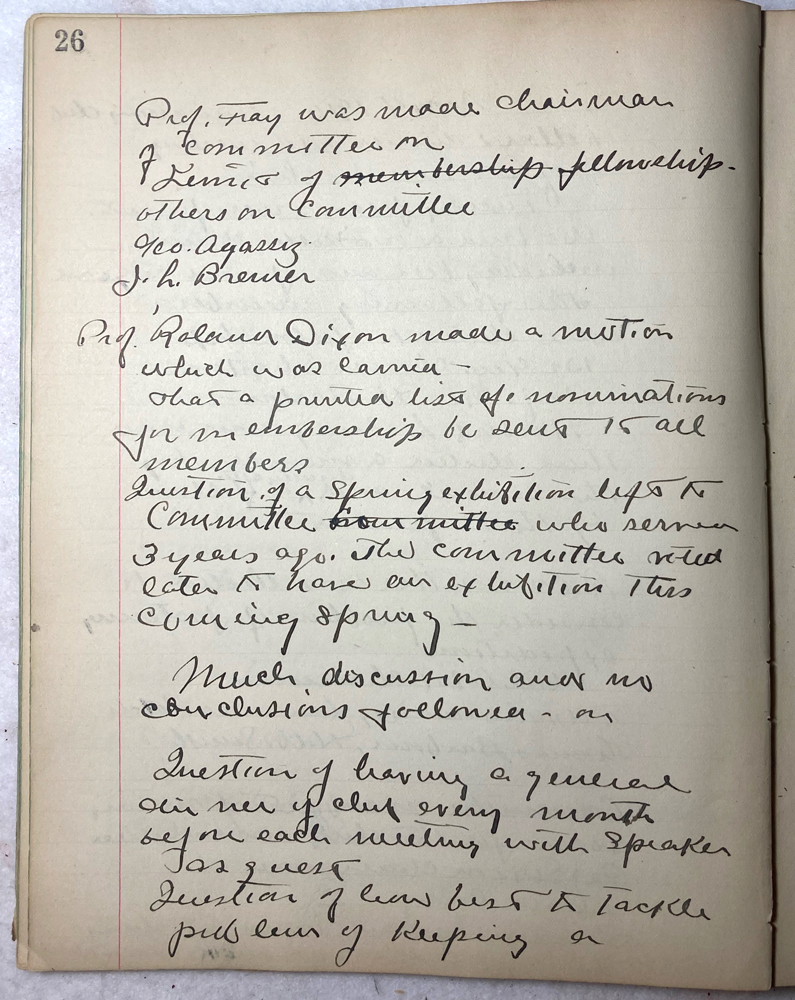 26
Prof. Fay was made chairman
of committee on
Limits of membership fellowship -
others on Committee
Geo. Agassiz
J. L. Bremer
Prof. Roland Dixon made a motion
which was carried -
that a printed list of nominations
for membership be sent to all
members
Question of a Spring exhibition left to
Committee committee who served
3 years ago. The committee voted
later to have an exhibition this
coming Spring -
Much discussion and no
conclusions followed - on
Question of having a general
dinner of club every month
before each meeting with Speaker
as guest
Question of how best to tackle
problem of Keeping a